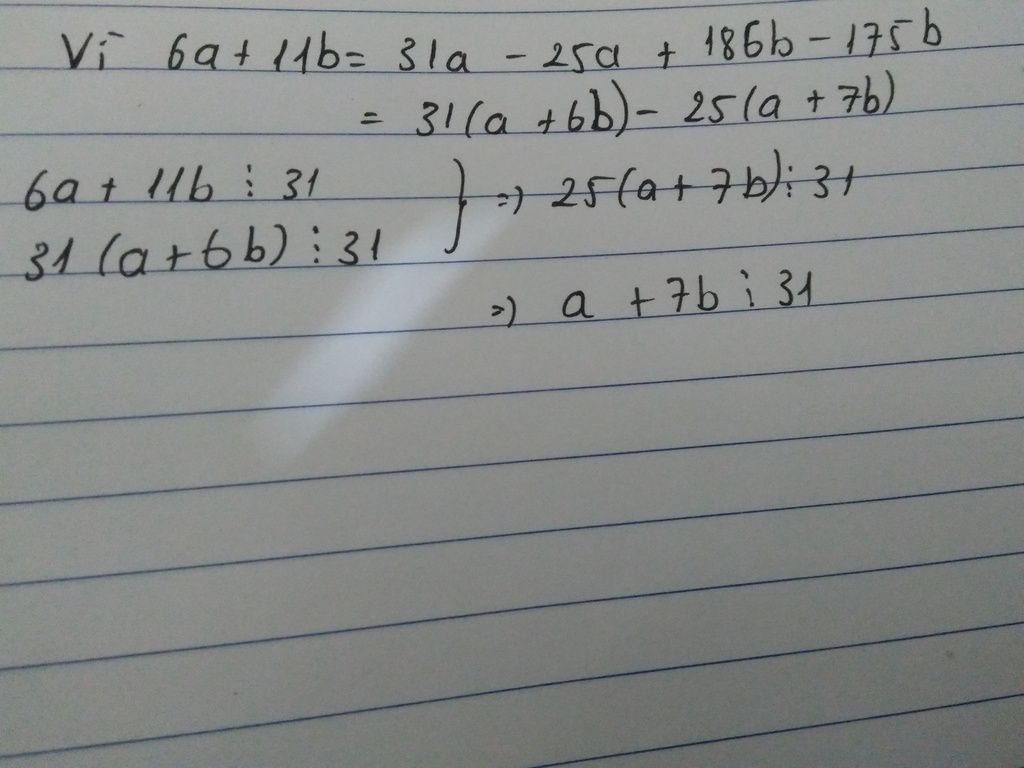 Vì 6a + 11b = 31a - 25a + 186b - 175b
= 31(a + 6b) - 25(a + 7b)
6a + 11b ⋮ 31 } => 25(a + 7b) ⋮ 31
31 (a + 6b) ⋮ 31
=> a + 7b ⋮ 31